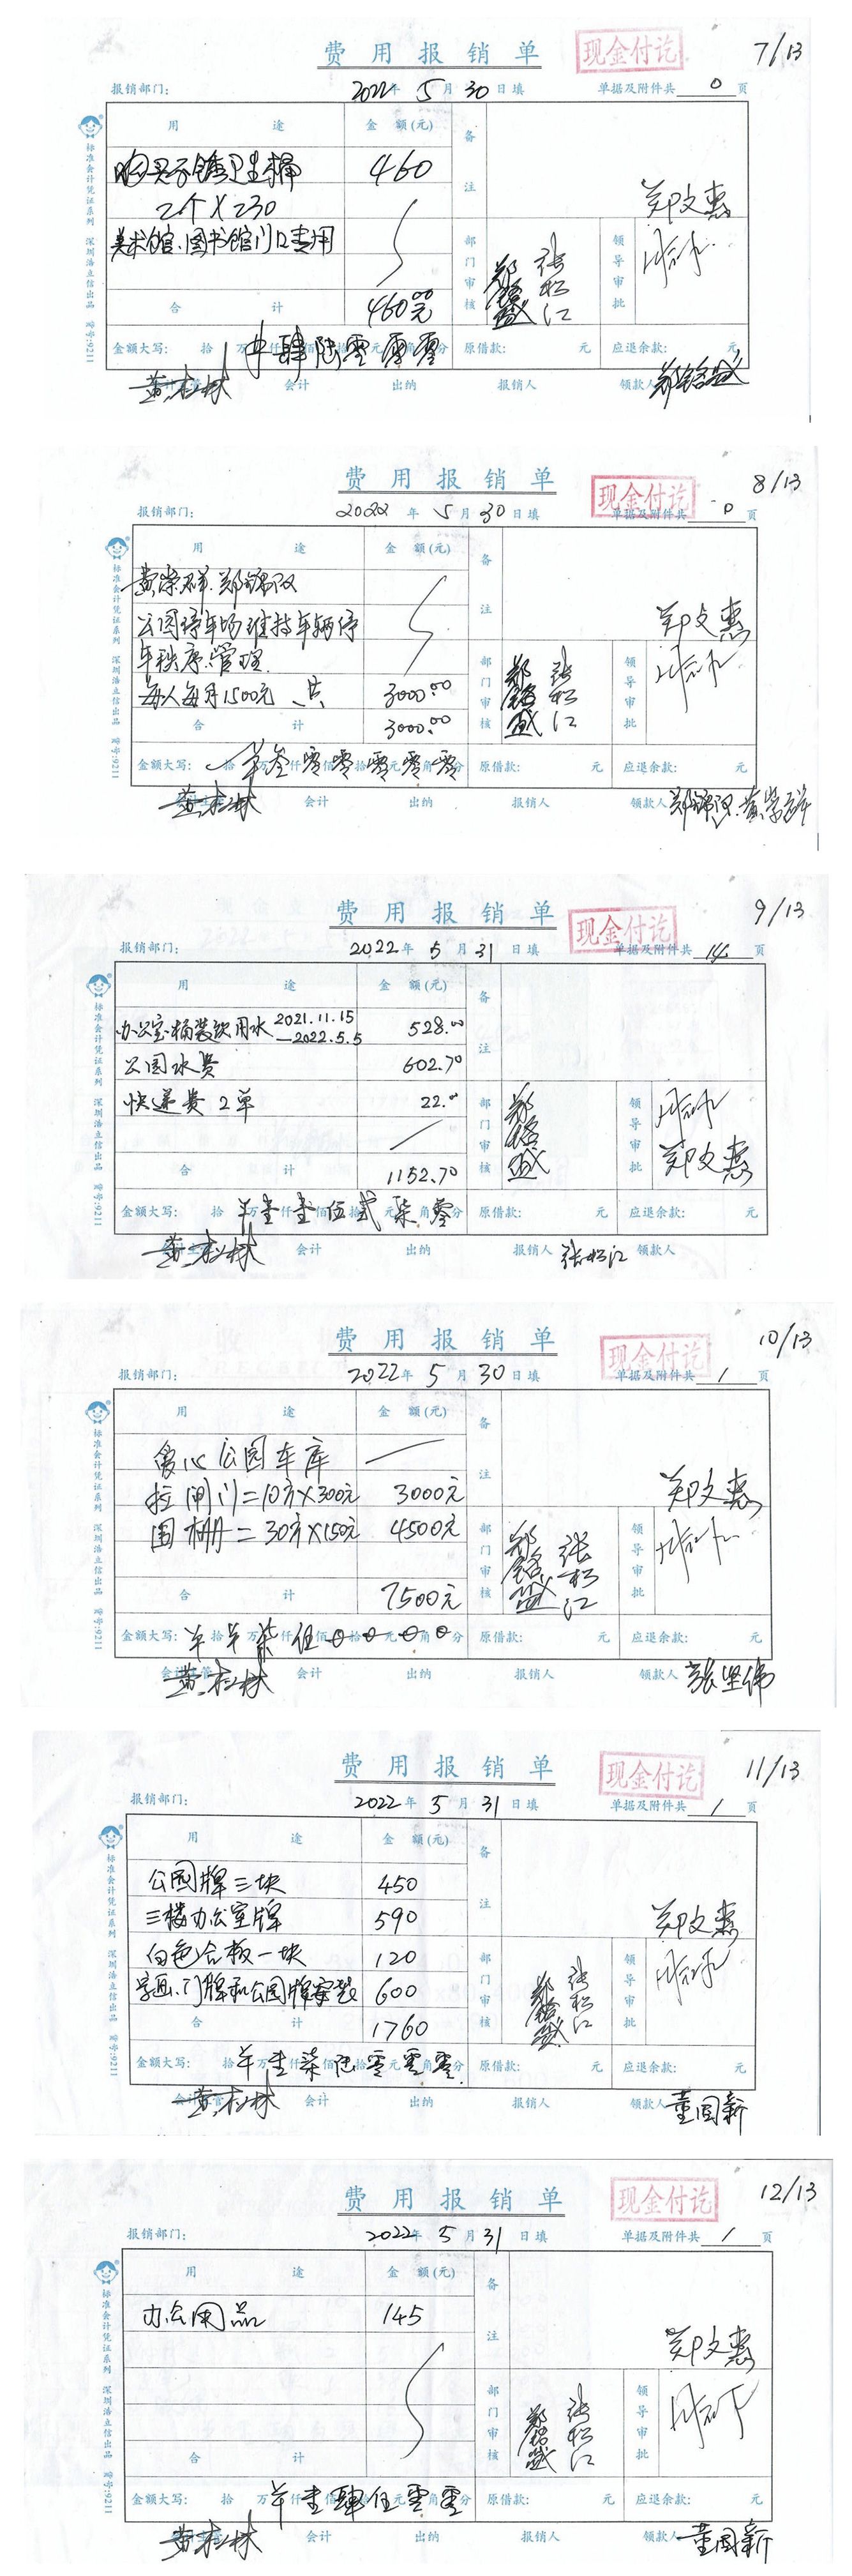 费用报销单
现金付讫
7/13
报销部门:
2022年 5月 30日填
单据及附件共 0 页
用途
金额(元)
备注
购买不锈卫生桶
460
2个X230
美术馆、图书馆门口专用
合计
460.00元
部门审核
郑铭盛
张松江
领导审批
郑文惠
金额大写: 拾万仟佰拾元角分
¥肆陆零零零
原借款: 元
应退余款: 元
会计主管
黄松林
会计
出纳
报销人
领款人
郑铭盛
标准会计凭证系列 深圳浩立信出品 货号:9211
费用报销单
现金付讫
8/13
报销部门:
2022年 5月 30日填
单据及附件共 0 页
用途
金额(元)
备注
黄崇群.郑锦汉
公园停车场维持车辆停
车秩序.管理.
每人每月1500元、共
3000.00
合计
3000.00
部门审核
郑铭盛
张松江
领导审批
郑文惠
金额大写: 拾万仟佰拾元角分
¥叁零零零零零
原借款: 元
应退余款: 元
会计主管
黄松林
会计
出纳
报销人
领款人
郑锦汉.黄崇群
标准会计凭证系列 深圳浩立信出品 货号:9211
费用报销单
现金付讫
9/13
报销部门:
2022年 5月 31日填
单据及附件共 14 页
用途
金额(元)
备注
办公室桶装饮用水 2021.11.15
—2022.5.5
528.00
公园水费
602.70
快递费 2单
22.00
合计
1152.70
部门审核
郑铭盛
领导审批
郑文惠
金额大写: 拾万仟佰拾元角分
¥壹壹伍贰柒零
原借款: 元
应退余款: 元
会计主管
黄松林
会计
出纳
报销人
张松江
领款人
标准会计凭证系列 深圳浩立信出品 货号:9211
费用报销单
现金付讫
10/13
报销部门:
2022年 5月 30日填
单据及附件共 1 页
用途
金额(元)
备注
爱心公园车库
拉闸门=10方X300元
3000元
围栅=30方X150元
4500元
合计
7500元
部门审核
郑铭盛
张松江
领导审批
郑文惠
金额大写: 拾万仟佰拾元角分
¥¥柒伍0000
原借款: 元
应退余款: 元
会计主管
黄松林
会计
出纳
报销人
领款人
张坚伟
标准会计凭证系列 深圳浩立信出品 货号:9211
费用报销单
现金付讫
11/13
报销部门:
2022年 5月 31日填
单据及附件共 1 页
用途
金额(元)
备注
公园牌三块
450
三楼办公室牌
590
白色合板一块
120
字画、门牌和公园牌安装
600
合计
1760
部门审核
郑铭盛
张松江
领导审批
郑文惠
金额大写: 拾万仟佰拾元角分
¥壹柒陆零零零
原借款: 元
应退余款: 元
会计主管
黄松林
会计
出纳
报销人
领款人
董国新
标准会计凭证系列 深圳浩立信出品 货号:9211
费用报销单
现金付讫
12/13
报销部门:
2022年 5月 31日填
单据及附件共 1 页
用途
金额(元)
备注
办公用品
145
合计
部门审核
郑铭盛
张松江
领导审批
郑文惠
金额大写: 拾万仟佰拾元角分
¥壹肆伍零零
原借款: 元
应退余款: 元
黄松林
会计
出纳
报销人
领款人
董国新
标准会计凭证系列 深圳浩立信出品 货号:9211